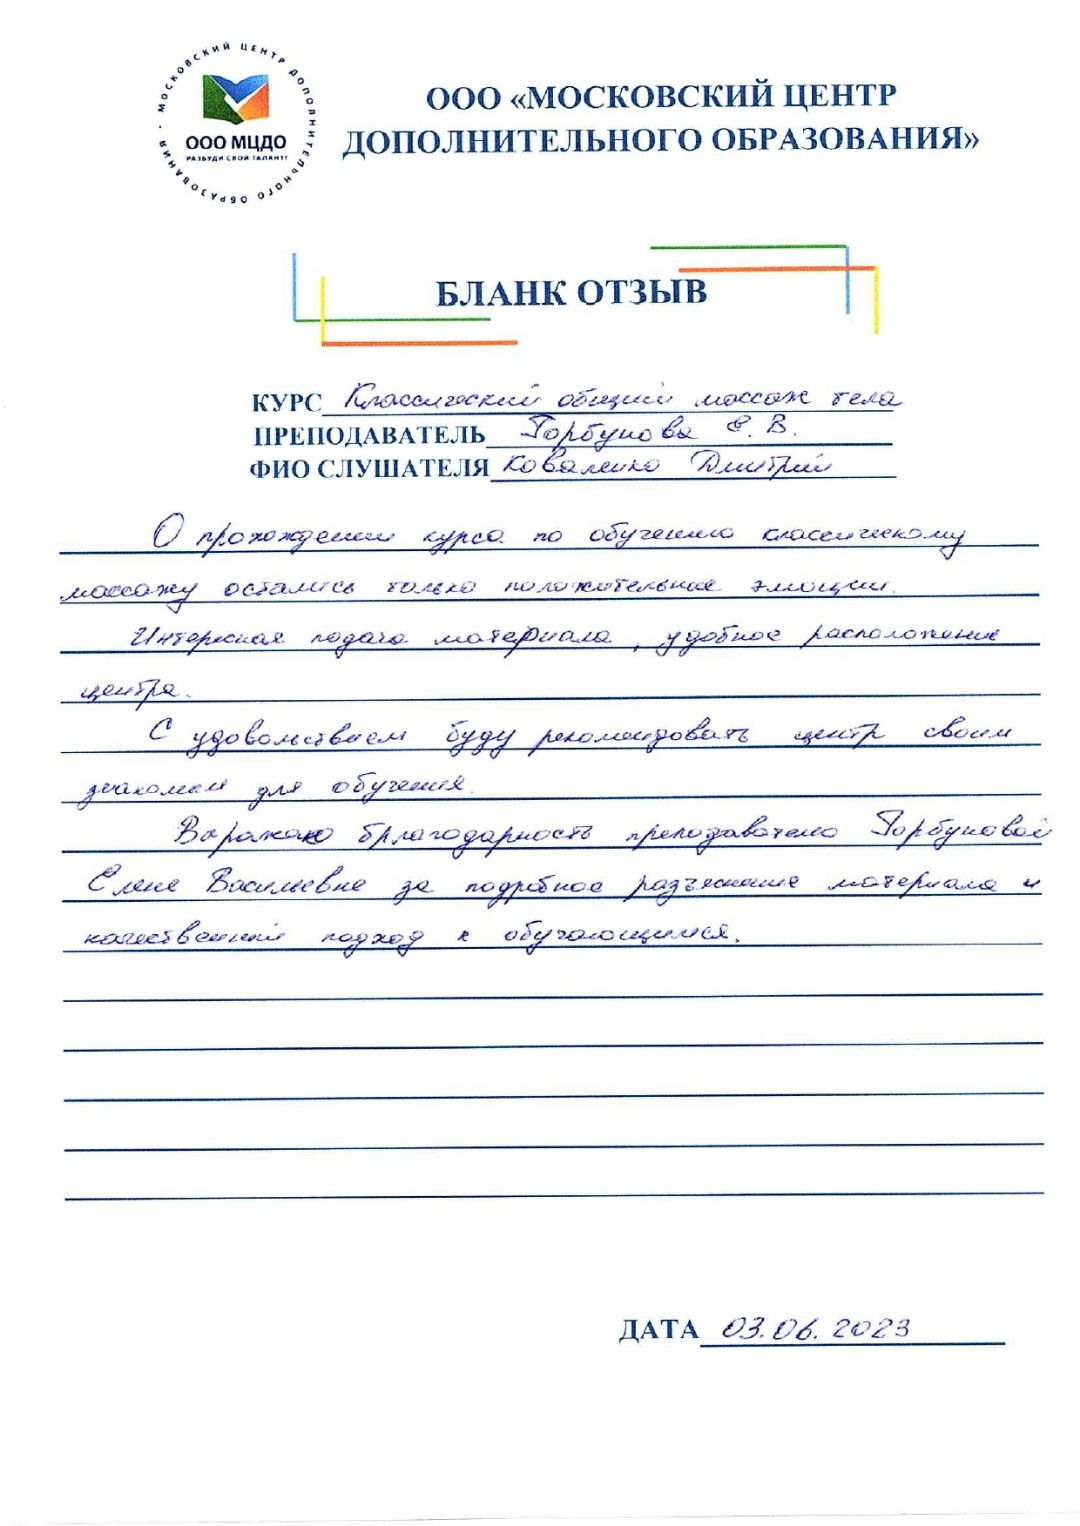 МОСКОВСКИЙ ЦЕНТР ДОПОЛНИТЕЛЬНОГО ОБРАЗОВАНИЯ
ООО МЦДО
РАЗБУДИ СВОЙ ТАЛАНТ!
ООО «МОСКОВСКИЙ ЦЕНТР
ДОПОЛНИТЕЛЬНОГО ОБРАЗОВАНИЯ»
БЛАНК ОТЗЫВ
КУРС Классический общий массаж тела
ПРЕПОДАВАТЕЛЬ Горбунова Е. В.
ФИО СЛУШАТЕЛЯ Коваленко Дмитрий
О прохождении курса по обучению классическому
массажу остались только положительные эмоции.
Интересная подача материала, удобное расположение
центра.
С удовольствием буду рекомендовать центр своим
знакомым для обучения.
Выражаю благодарность преподавателю Горбуновой
Елене Васильевне за подробное разъяснение материала и
качественный подход к обучающимся.
ДАТА 03.06.2023